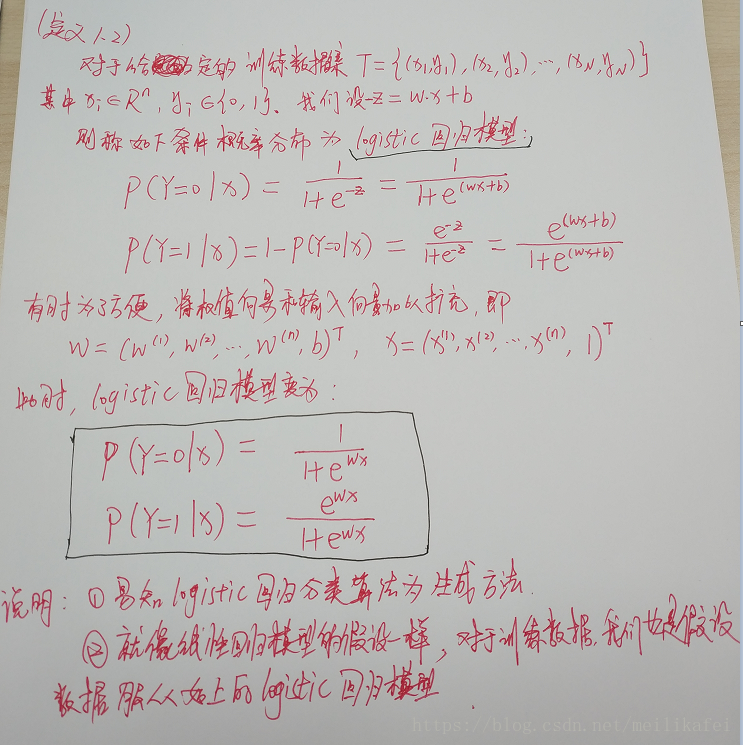 (定义1-2)
对于给定的训练数据集 T={(x₁,y₁),(x₂,y₂),…,(x_N,y_N)}
其中 xᵢ∈Rⁿ, yᵢ∈{0,1}. 我们设 z=w·x+b
则称如下条件概率分布为 logistic回归模型:
P(Y=0|x) = 1/(1+e^{-z}) = 1/(1+e^{(wx+b)})
P(Y=1|x) = 1-P(Y=0|x) = e^{-z}/(1+e^{-z}) = e^{(wx+b)}/(1+e^{(wx+b)})
有时为了方便, 将权值向量和输入向量加以扩充, 即
w=(w^{(1)},w^{(2)},…,w^{(n)},b)^T, x=(x^{(1)},x^{(2)},…,x^{(n)},1)^T
此时, logistic回归模型变为:
P(Y=0|x) = 1/(1+e^{wx})
P(Y=1|x) = e^{wx}/(1+e^{wx})
说明: ① 易知logistic回归分类算法为生成方法.
② 就像线性回归模型的假设一样, 对于训练数据, 我们假设
数据服从如上的logistic回归模型.
https://blog.csdn.net/meilikafei